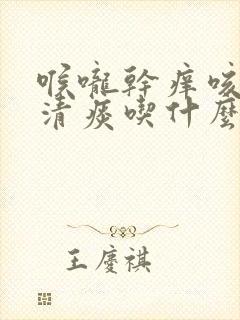 喉嚨幹癢咳
清痰喫什麼
王慶祺